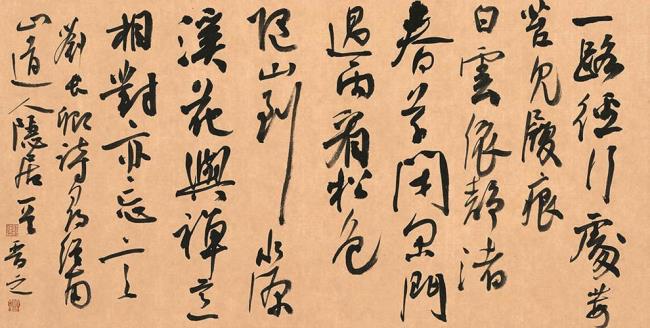 一路經行處莓
苔見履痕
白雲依靜渚
春草閑門
過雨看松色
隨山到水源
溪花與禪意
相對亦忘言
劉長卿詩尋南
山道人隱居 之